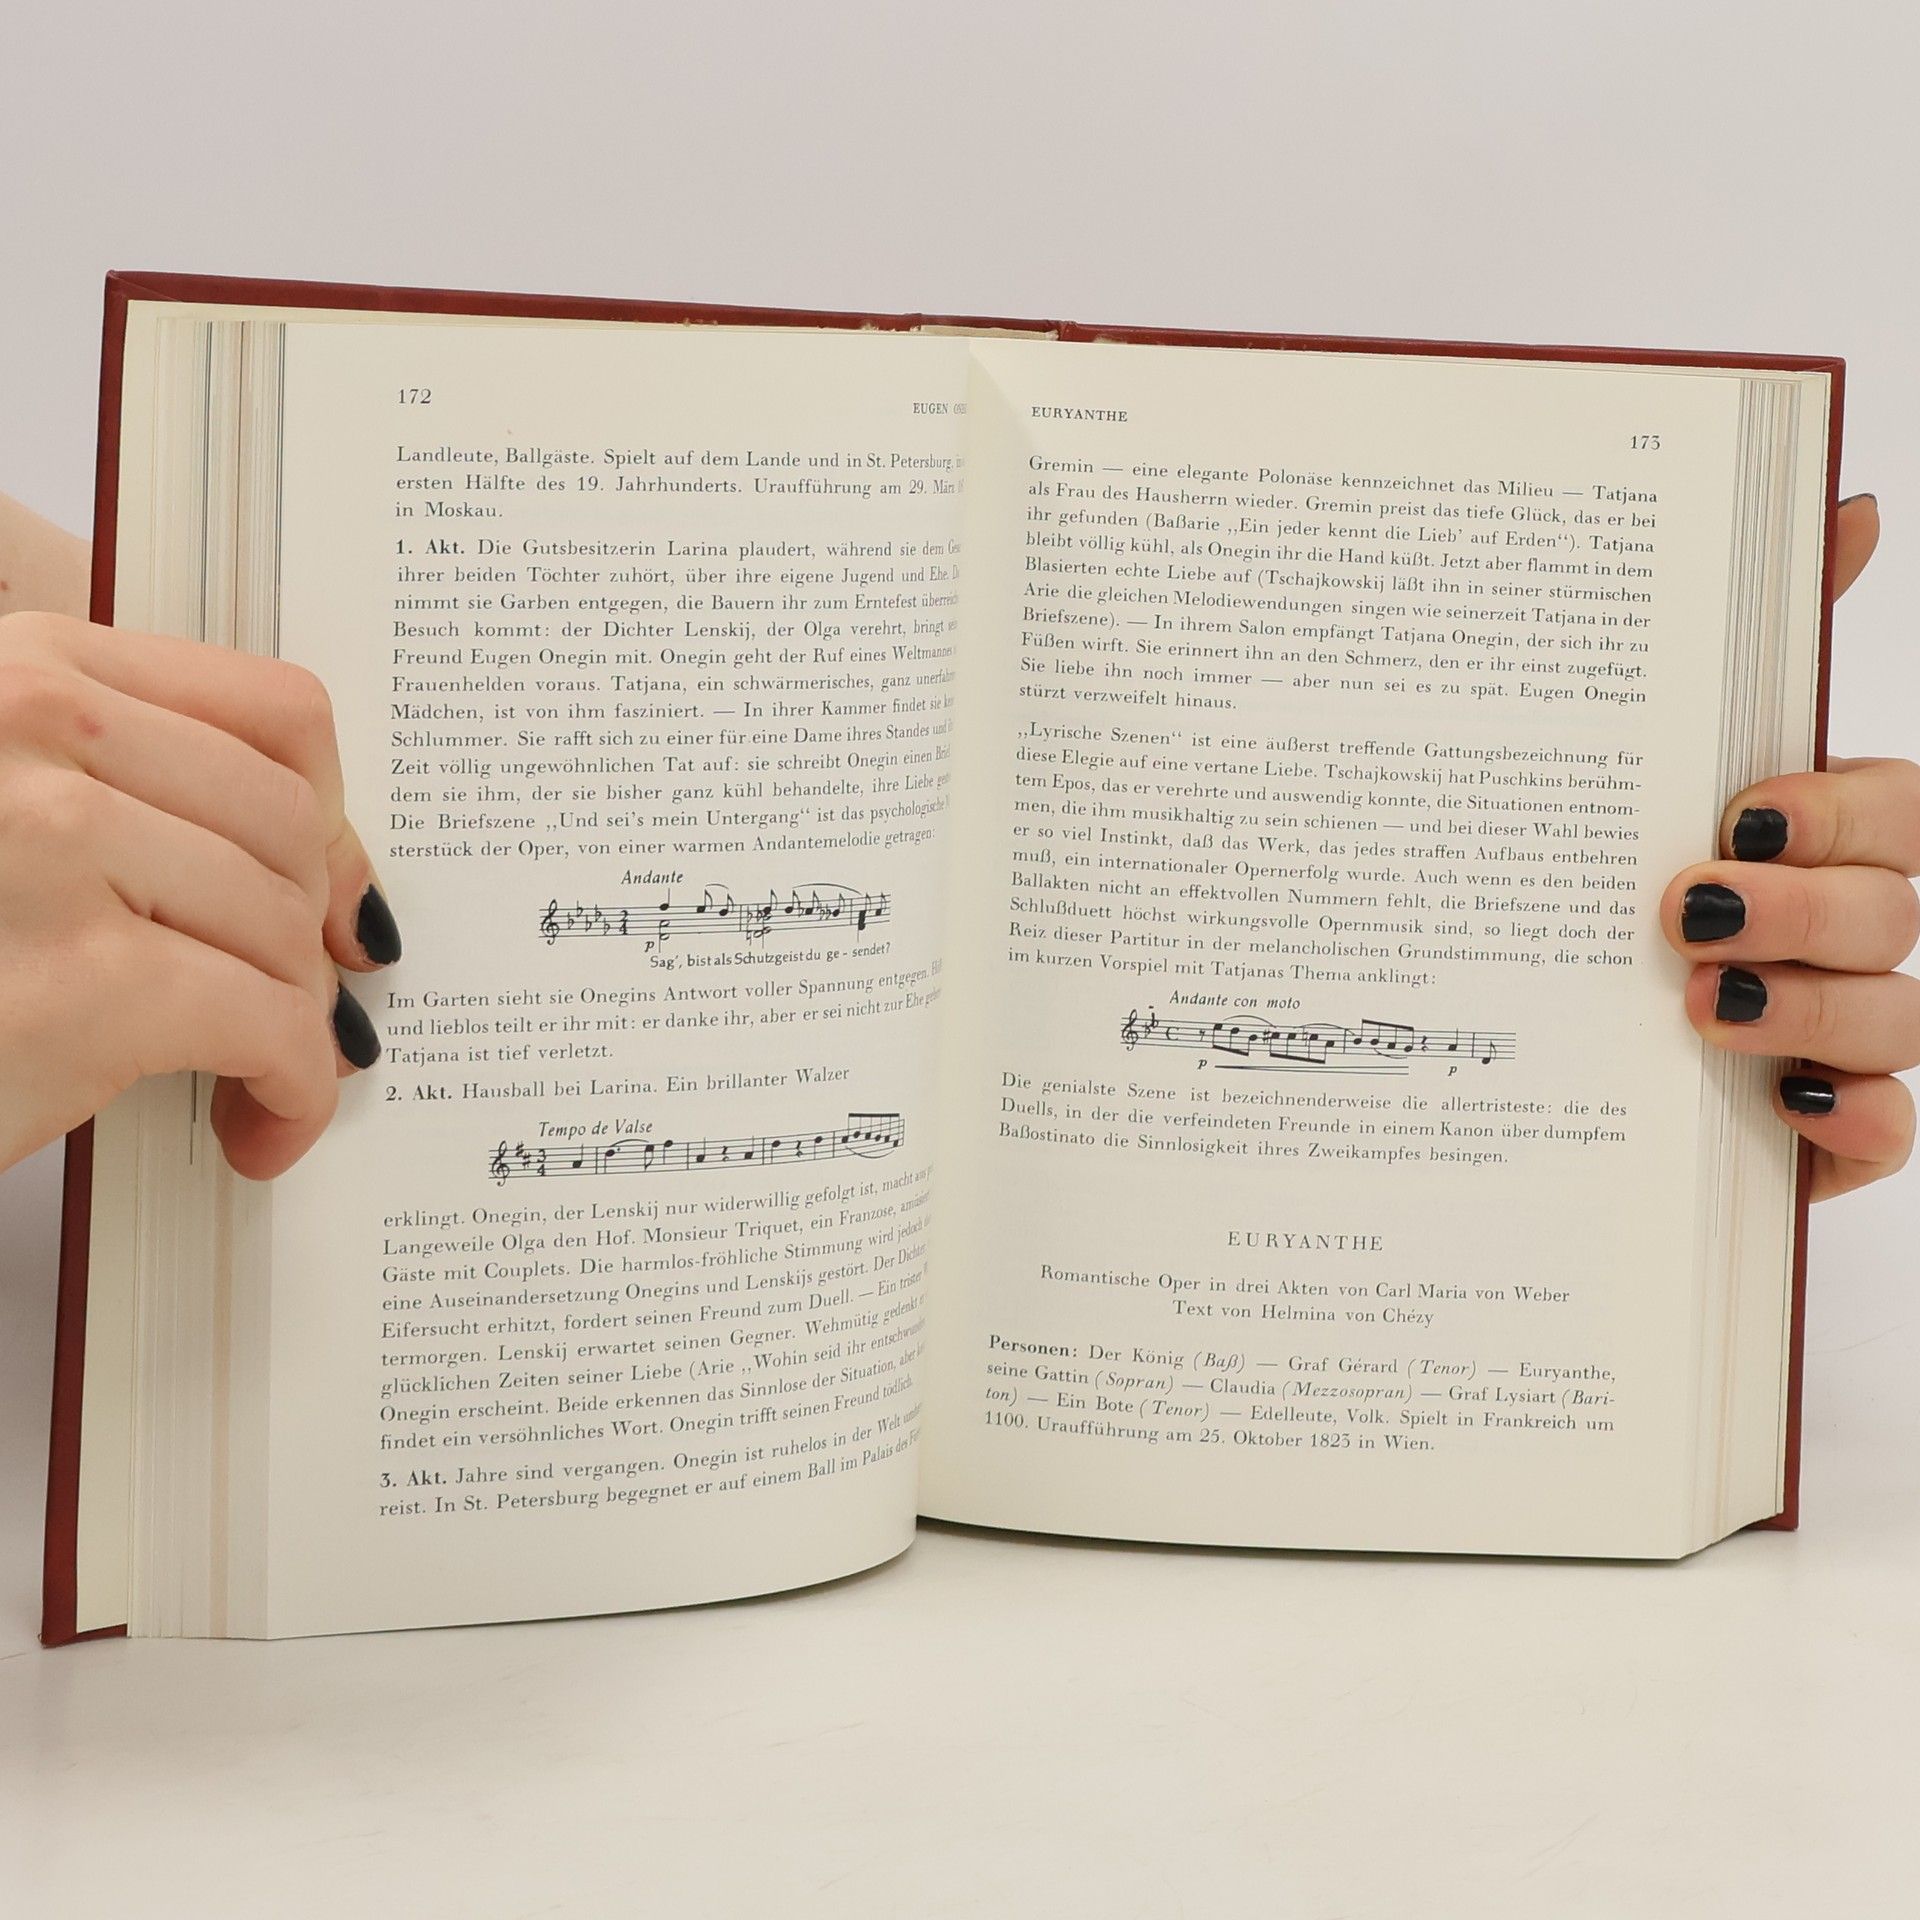 172
EUGEN
Landleute, Ballgäste. Spielt auf dem Lande und in St. Petersburg,
ersten Hälfte des 19. Jahrhunderts. Uraufführung am 29. März
in Moskau.
1. Akt. Die Gutsbesitzerin Larina plaudert, während sie dem
ihrer beiden Töchter zuhört, über ihre eigene Jugend und Ehe.
nimmt sie Garben entgegen, die Bauern ihr zum Erntefest
Besuch kommt: der Dichter Lenskij, der Olga verehrt, bringt
Freund Eugen Onegin mit. Onegin geht der Ruf eines Weltmannes
Frauenhelden voraus. Tatjana, ein schwärmerisches, ganz
Mädchen, ist von ihm fasziniert. — In ihrer Kammer findet sie
Schlummer. Sie rafft sich zu einer für eine Dame ihres Standes und
Zeit völlig ungewöhnlichen Tat auf: sie schreibt Onegin einen
dem sie ihm, der sie bisher ganz kühl behandelte, ihre Liebe
Die Briefszene „Und sei's mein Untergang“ ist das psychologische
sterstück der Oper, von einer warmen Andantemelodie getragen:
Andante
p
Sag', bist als Schutzgeist du ge - sendet?
Im Garten sieht sie Onegins Antwort voller Spannung entgegen.
und lieblos teilt er ihr mit: er danke ihr, aber er sei nicht zur Ehe
Tatjana ist tief verletzt.
2. Akt. Hausball bei Larina. Ein brillanter Walzer
Tempo de Valse
3
4
erklingt. Onegin, der Lenskij nur widerwillig gefolgt ist, macht aus
Langeweile Olga den Hof. Monsieur Triquet, ein Franzose,
Gäste mit Couplets. Die harmlos-fröhliche Stimmung wird jedoch
eine Auseinandersetzung Onegins und Lenskijs gestört. Der Dichter
Eifersucht erhitzt, fordert seinen Freund zum Duell. — Ein trister
termorgen. Lenskij erwartet seinen Gegner. Wehmütig gedenkt
glücklichen Zeiten seiner Liebe (Arie „Wohin seid ihr
Onegin erscheint. Beide erkennen das Sinnlose der Situation, aber
findet ein versöhnliches Wort. Onegin trifft seinen Freund tödlich.
3. Akt. Jahre sind vergangen. Onegin ist ruhelos in der Welt
reist. In St. Petersburg begegnet er auf einem Ball im Palais des
EURYANTHE
173
Gremin — eine elegante Polonäse kennzeichnet das Milieu — Tatjana
als Frau des Hausherrn wieder. Gremin preist das tiefe Glück, das er bei
ihr gefunden (Baßarie „Ein jeder kennt die Lieb' auf Erden“). Tatjana
bleibt völlig kühl, als Onegin ihr die Hand küßt. Jetzt aber flammt in dem
Blasierten echte Liebe auf (Tschajkowskij läßt ihn in seiner stürmischen
Arie die gleichen Melodiewendungen singen wie seinerzeit Tatjana in der
Briefszene). — In ihrem Salon empfängt Tatjana Onegin, der sich ihr zu
Füßen wirft. Sie erinnert ihn an den Schmerz, den er ihr einst zugefügt.
Sie liebe ihn noch immer — aber nun sei es zu spät. Eugen Onegin
stürzt verzweifelt hinaus.
„Lyrische Szenen“ ist eine äußerst treffende Gattungsbezeichnung für
diese Elegie auf eine vertane Liebe. Tschajkowskij hat Puschkins berühm-
tem Epos, das er verehrte und auswendig konnte, die Situationen entnom-
men, die ihm musikhaltig zu sein schienen — und bei dieser Wahl bewies
er so viel Instinkt, daß das Werk, das jedes straffen Aufbaus entbehren
muß, ein internationaler Opernerfolg wurde. Auch wenn es den beiden
Ballakten nicht an effektvollen Nummern fehlt, die Briefszene und das
Schlußduett höchst wirkungsvolle Opernmusik sind, so liegt doch der
Reiz dieser Partitur in der melancholischen Grundstimmung, die schon
im kurzen Vorspiel mit Tatjanas Thema anklingt:
Andante con moto
p p
Die genialste Szene ist bezeichnenderweise die allertristeste: die des
Duells, in der die verfeindeten Freunde in einem Kanon über dumpfem
Baßostinato die Sinnlosigkeit ihres Zweikampfes besingen.
EURYANTHE
Romantische Oper in drei Akten von Carl Maria von Weber
Text von Helmina von Chézy
Personen: Der König (Baß) — Graf Gérard (Tenor) — Euryanthe,
seine Gattin (Sopran) — Claudia (Mezzosopran) — Graf Lysiart (Bari-
ton) — Ein Bote (Tenor) — Edelleute, Volk. Spielt in Frankreich um
1100. Uraufführung am 25. Oktober 1823 in Wien.